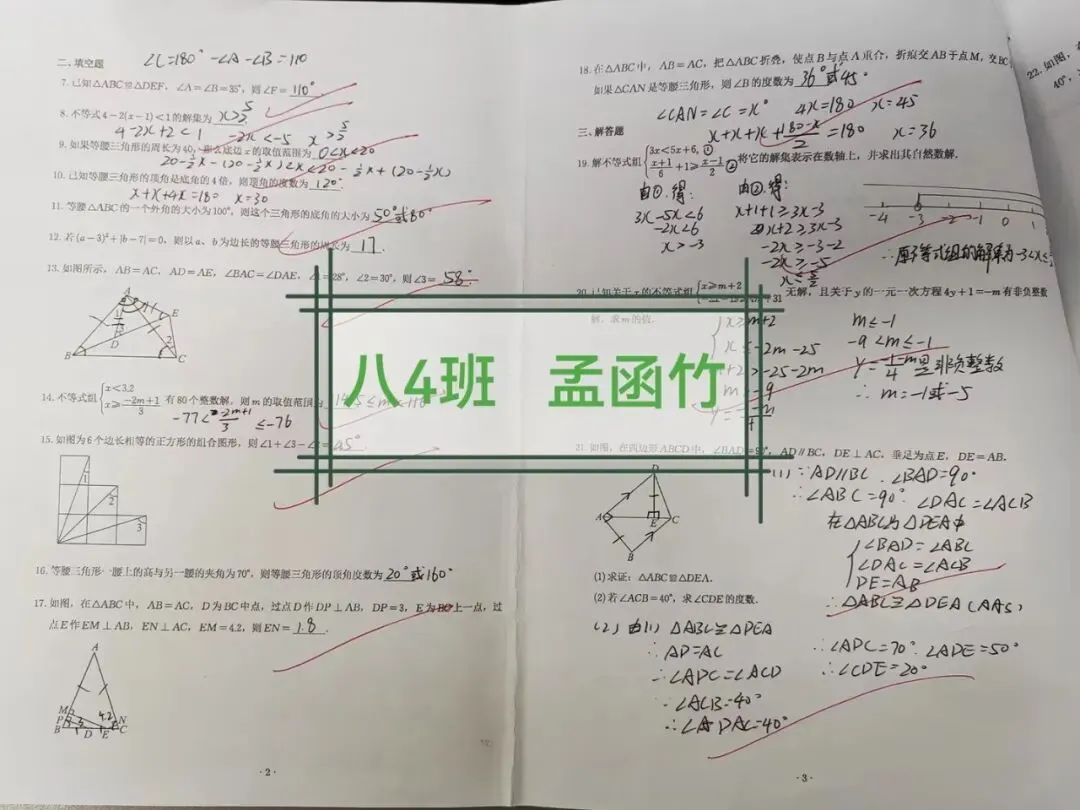 二、填空题
∠C=180°-∠A-∠B=110
7.已知△ABC≌△DEF，∠A=∠B=35°，则∠F=110°.
8.不等式4-2(x-1)<1的解集为x>5/2.
4-2x+2<1 -2x<-5 x>5/2
9.如果等腰三角形的周长为40，那么底边x的取值范围为0<x<20
10.已知等腰三角形的顶角是底角的4倍，则顶角的度数为120°.
x+x+4x=180 x=30
11.等腰△ABC的一个外角的大小为100°，则这个三角形的底角的大小为50°或80°
12.若(a-3)²+|b-7|=0，则以a、b为边长的等腰三角形的周长为17.
13.如图所示，AB=AC，AD=AE，∠BAC=∠DAE，∠1=28°，∠2=30°，则∠3=58°.
A
E
D
B
C
14.不等式组{x<3.2 x≥-2m+1/3 有80个整数解，则m的取值范围为
-77<-2m+1/3≤-76
15.如图为6个边长相等的正方形的组合图形，则∠1+∠3-∠2=45°
1
2
3
16.等腰三角形一腰上的高与另一腰的夹角为70°，则等腰三角形的顶角度数为20°或160°
17.如图，在△ABC中，AB=AC，D为BC中点，过点D作DP⊥AB，DP=3，E为BC上一点，过
点E作EM⊥AB，EN⊥AC，EM=4.2，则EN=1.8.
A
M
P
3
4.2
N
B
D
E
C
·2·
18.在△ABC中，AB=AC，把△ABC折叠，使点B与点A重合，折痕交AB于点M，交BC
如果△CAN是等腰三角形，则∠B的度数为36°或45°
∠CAN=∠C=x° 4x=180 x=45
x+x+x+180-x/2=180 x=36
三、解答题
19.解不等式组{3x<5x+6,① x+1/6+1≥x-1/2② 将它的解集表示在数轴上，并求出其自然数解.
由①得: 由②得:
3x-5x<6 x+1+1≥3x-3
-2x<6
x>-3 -2x≥-3-2
-2x≥-5
x≤5/2
-4 -3 -2 -1 0
∴原不等式组的解集为-3<x≤
20.已知关于x的不等式组{x≥m+2 无解，且关于y的一元一次方程4y+1=-m有非负整数
解，求m的值.
x≥m+2 m≤-1
x≤-2m-25 -9<m≤-1
m+2>-25-2m y=-1-m/4是非负整数
m>-9 ∴m=-1或-5
八4班 孟函竹
21.如图，在四边形ABCD中，∠BAD=90°，AD∥BC，DE⊥AC，垂足为点E，DE=AB.
D
A
E
C
B
(1)∵AD∥BC.∠BAD=90°
∴∠ABC=90°.∠DAC=∠ACB
在△ABC与△DEA中
∠BAD=∠ABC
∠DAC=∠ACB
DE=AB
∴△ABC≌△DEA(AAS)
(1)求证：△ABC≌△DEA.
(2)若∠ACB=40°，求∠CDE的度数.
(2)由(1)△ABC≌△DEA
∴AD=AC
∴∠ADC=∠ACD
∵∠ACB=40°
∴∠DAC=40°
∴∠ADC=70°.∠ADE=50°
∴∠CDE=20°
·3·
22.如图，
40°，